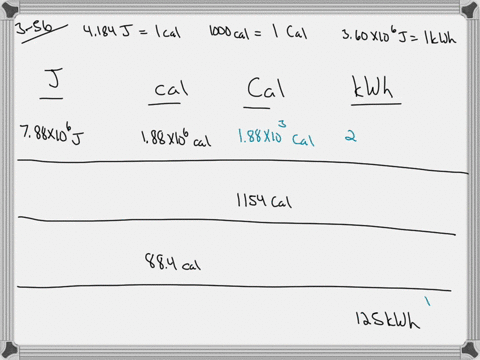 3-56 4.184 J = 1 cal 1000 cal = 1 Cal 3.60X10⁶ J = 1 kWh
J cal Cal kWh
7.88X10⁶ J 1.88X10⁶ cal 1.88X10³ Cal 2
1154 Cal
88.4 cal
125 kWh